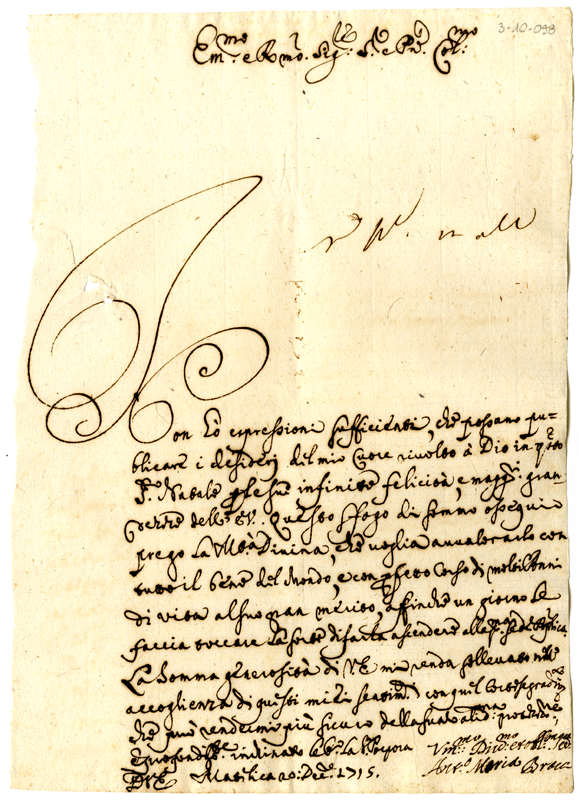 3-10-098
Em.mo e R.mo Sig.r S.r e P.ne Col.mo
Non hò espressioni sufficienti, che possano pu=
blicare i desiderj del mio Cuore rivolto à Dio in q.sto
S.to Natale p le sue infinite felicità, e magg.ri gran
dezze dell' E.V. Questo sfogo di sommo ossequio
prego La M.tà Divina, che voglia avvalorarlo con
tutto il bene del Mondo, e con Corso di molti Anni
di vita al suo gran merito, affinche un giorno Le
faccia toccare La sorte di farla ascendere alla
La somma generosità di V.E. mi renda sollevato nell'
accoglienza di questi miei sentim.ti con quel Cortese gradim.to
che può rendermi più sicuro della sua
inchinato Le b.o La S. Porpora
D.V.E. Matelica 20: Dec.re 1715.
Ant.o Maria